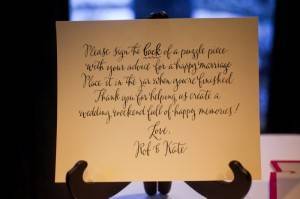 Please sign the back of a puzzle piece
with your advice for a happy marriage
Place it in the jar when you're finished
Thank you for helping us create a
wedding weekend full of happy memories!
Love,
Rob & Kate